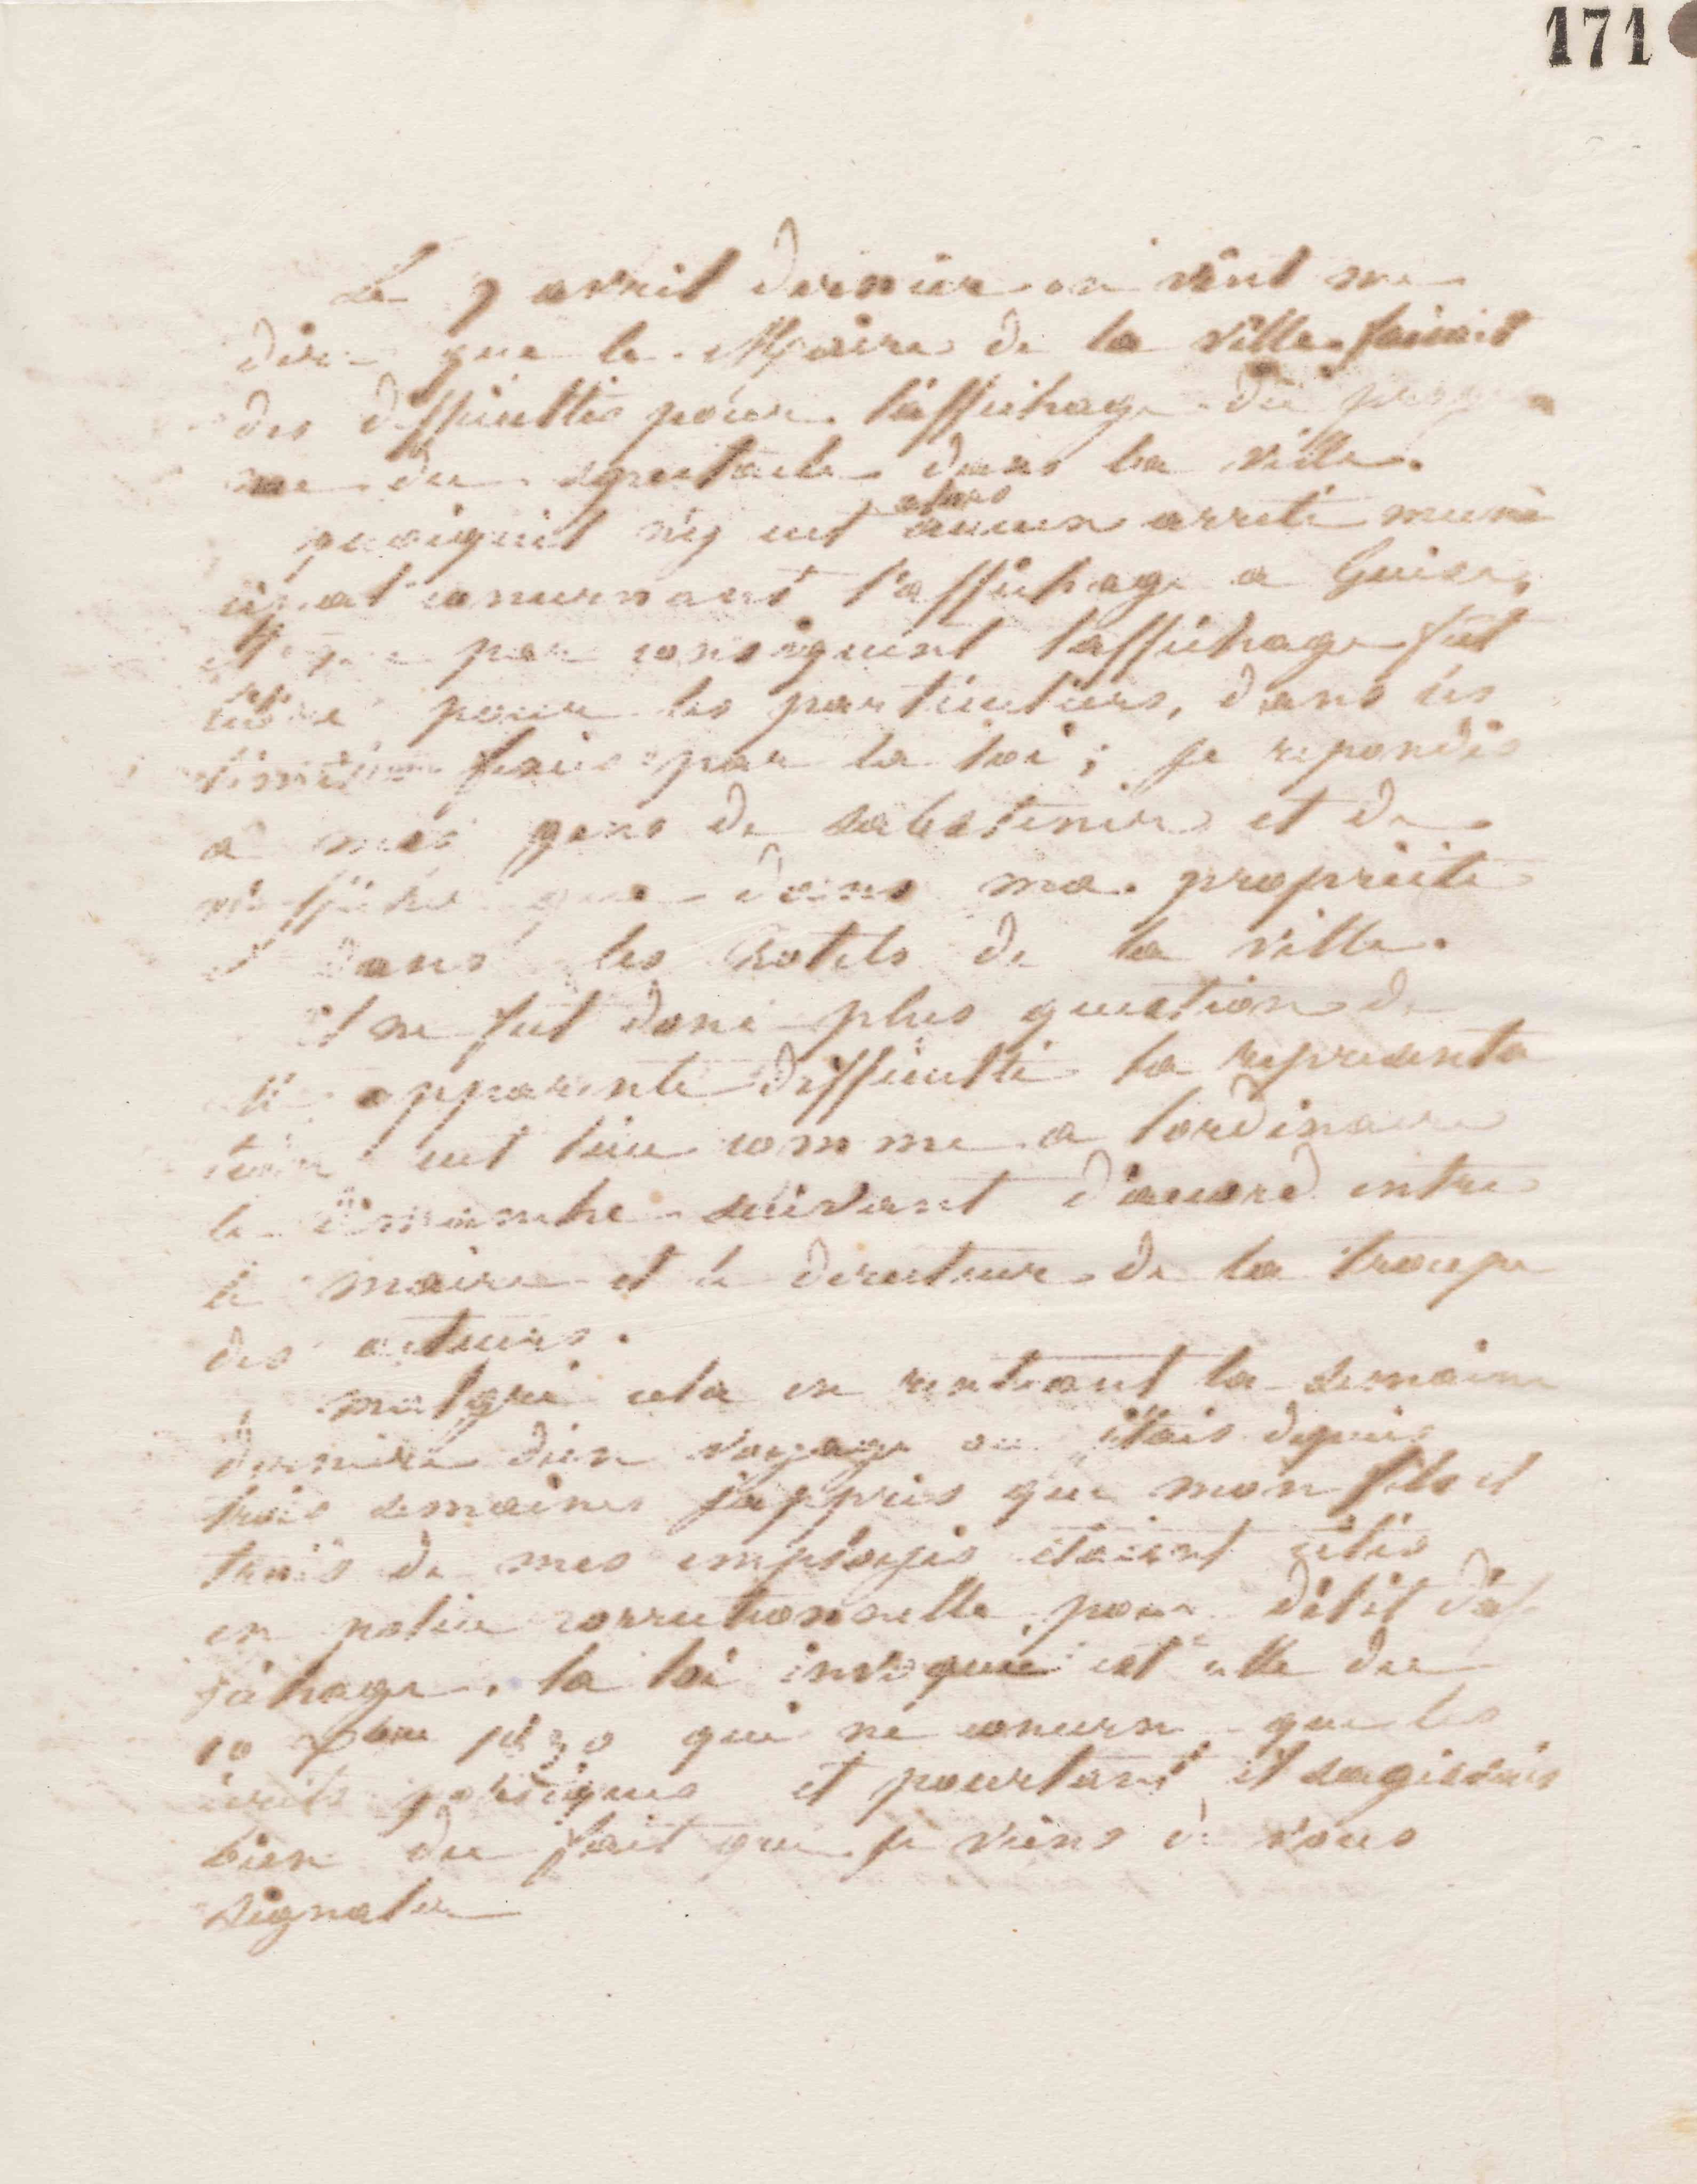 171
Le 7 avril dernier on vint me
dire que le Maire de la ville faisait
des difficultés pour l'affichage du progra
me du spectacle dans la ville.
quoiqu'il n'y eut alors aucun arreté muni
cipal concernant l'affichage a Guise,
et que par consequent l'affichage fut
libre pour les particuliers, dans les
limites fixées par la loi ; je repondis
a mes gens de sabstenir et de
n'afficher que dans ma propriété
et dans les hotels de la ville.
Il ne fut donc plus question de
l'apparente difficulté la representa
tion eut lieu comme a lordinaire
le dimanche suivant d'accord entre
le maire et le directeur de la troupe
des acteurs.
malgré cela en rentrant la semaine
derniere d'un voyage ou j'étais depuis
trois semaines j'appris que mon fils et
trois de mes employés étaient cités
en police correctionnelle pour délit d'af
fichage. la loi invoquée est celle du
10 Xbre 1830 qui ne concerne que les
écrits politiques et pourtant il sagissait
bien du fait que je viens de vous
signaler